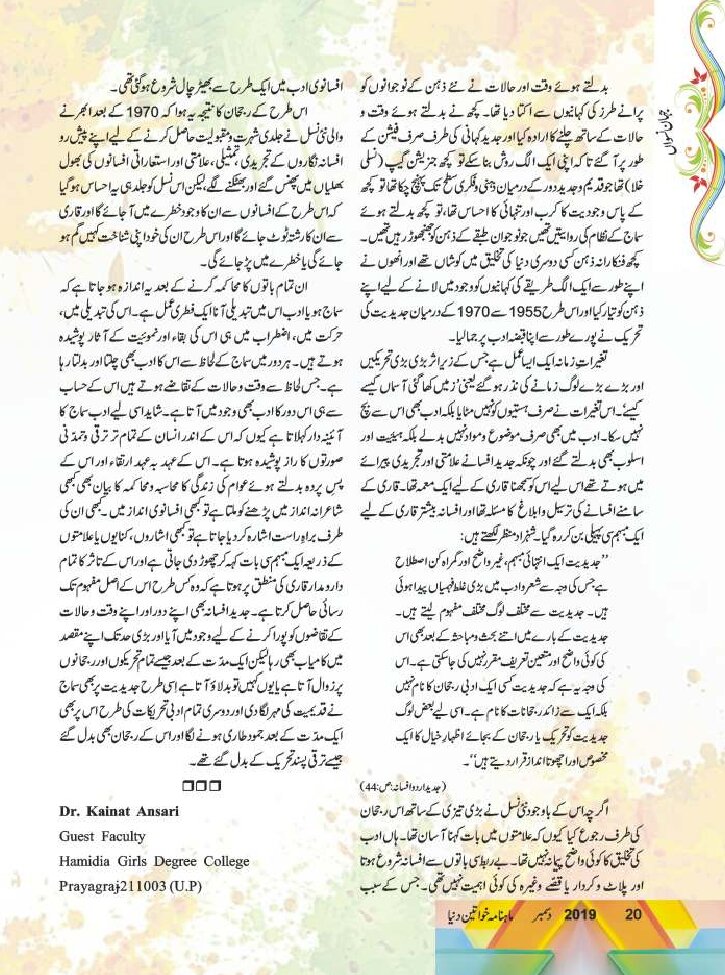 جہان نسواں
بدلتے ہوئے وقت اور حالات نے نئے ذہن کے نوجوانوں کو
پرانے طرز کی کہانیوں سے اکتا دیا تھا۔ کچھ نے بدلتے ہوئے وقت و
حالات کے ساتھ چلنے کا ارادہ کیا اور جدید کہانی کی طرف صرف فیشن کے
طور پر آگئے تاکہ اپنی ایک الگ روش بنا سکے تو کچھ جنریشن گیپ (نسلی
خلا) تھا جو قدیم و جدید دور کے درمیان ذہنی و فکری سطح تک پہنچ چکا تھا، تو کچھ
کے پاس وجودیت کا کرب اور تنہائی کا احساس تھا، تو کچھ بدلتے ہوئے
سماج کے نظام کی روایتیں تھیں جو نوجوان طبقے کے ذہن کو جھنجھوڑ رہیں تھیں۔
کچھ فنکارانہ ذہن کسی دوسری دنیا کی تخلیق میں کوشاں تھے اور انھوں نے
اپنے طور سے ایک الگ طریقے کی کہانیوں کو وجود میں لانے کے لیے اپنے
ذہن کو تیار کیا اور اس طرح 1955 سے 1970 کے درمیان جدیدیت کی
تحریک نے پورے طور سے اپنا قبضہ ادب پر جمالیا۔
تغیراتِ زمانہ ایک ایسا عمل ہے جس کے زیر اثر بڑی بڑی تحریکیں
اور بڑے بڑے لوگ زمانے کی نذر ہوگئے یعنی ’زمیں کھا گئی آسماں کیسے
کیسے‘۔ اس تغیرات نے صرف ہستیوں کو نہیں مٹایا بلکہ ادب بھی اس سے بچ
نہیں سکا۔ ادب میں بھی صرف موضوع و مواد نہیں بدلے بلکہ ہیئیت اور
اسلوب بھی بدلتے گئے اور چونکہ جدید افسانے علامتی اور تجریدی پیرائے
میں ہوتے تھے اس لیے اس کو سمجھنا قاری کے لیے ایک معمہ تھا۔ قاری کے
سامنے افسانے کی ترسیل و ابلاغ کا مسئلہ تھا اور افسانہ بیشتر قاری کے لیے
ایک مبہم سی پہیلی بن کر رہ گیا۔ شہزاد منظر لکھتے ہیں:
’’جدیدیت ایک انتہائی مبہم، غیر واضح اور گمراہ کن اصطلاح
ہے جس کی وجہ سے شعر و ادب میں بڑی غلط فہمیاں پیدا ہوئی
ہیں۔ جدیدیت سے مختلف لوگ مختلف مفہوم لیتے ہیں۔
جدیدیت کے بارے میں اتنے بحث و مباحثہ کے بعد بھی اس
کی کوئی واضح اور متعین تعریف مقرر نہیں کی جاسکتی ہے۔ اس
کی وجہ یہ ہے کہ جدیدیت کسی ایک ادبی رجحان کا نام نہیں
بلکہ ایک سے زائد رجحانات کا نام ہے۔ اسی لیے بعض لوگ
جدیدیت کو تحریک یا رجحان کے بجائے اظہارِ خیال کا ایک
مخصوص اور اچھوتا انداز قرار دیتے ہیں‘‘۔
(جدید اردو افسانہ: ص:44)
اگرچہ اس کے باوجود نئی نسل نے بڑی تیزی کے ساتھ اس رجحان
کی طرف رجوع کیا کیوں کہ علامتوں میں بات کہنا آسان تھا۔ ہاں ادب
کی تخلیق کا کوئی واضح پیمانہ نہیں تھا۔ بے ربط سی باتوں سے افسانہ شروع ہوتا
اور پلاٹ و کردار یا قصے وغیرہ کی کوئی اہمیت نہیں تھی۔ جس کے سبب
افسانوی ادب میں ایک طرح سے بھیڑ چال شروع ہوگئی تھی۔
اس طرح کے رجحان کا نتیجہ یہ ہوا کہ 1970 کے بعد ابھرنے
والی نئی نسل نے جلدی شہرت و مقبولیت حاصل کرنے کے لیے اپنے پیش رو
افسانہ نگاروں کے تجریدی، تمثیلی، علامتی اور استعاراتی افسانوں کی بھول
بھلیاں میں پھنس گئے اور بھٹکنے لگے، لیکن اس نسل کو جلدی یہ احساس ہوگیا
کہ اس طرح کے افسانوں سے ان کا وجود خطرے میں آجائے گا اور قاری
سے ان کا رشتہ ٹوٹ جائے گا اور اس طرح ان کی خود اپنی شناخت کہیں گم ہو
جائے گی یا خطرے میں پڑ جائے گی۔
ان تمام باتوں کا محاکمہ کرنے کے بعد یہ اندازہ ہو جاتا ہے کہ
سماج ہو یا ادب اس میں تبدیلی آنا ایک فطری عمل ہے۔ اس کی تبدیلی میں،
حرکت میں، اضطراب میں ہی اس کی بقاء اور نموئیت کے آثار پوشیدہ
ہوتے ہیں۔ ہر دور میں سماج کے لحاظ سے اس کا ادب بھی چلتا اور بدلتا رہا
ہے۔ جس لحاظ سے وقت و حالات کے تقاضے ہوتے ہیں اس کے حساب
سے ہی اس دور کا ادب بھی وجود میں آتا ہے۔ شاید اسی لیے ادب سماج کا
آئینہ دار کہلاتا ہے کیوں کہ اس کے اندر انسان کے تمام تر ترقی و تمدنی
صورتوں کا راز پوشیدہ ہوتا ہے۔ اس کے عہد بہ عہد ارتقاء اور اس کے
پس پردہ بدلتے ہوئے عوام کی زندگی کا محاسبہ و محاکمہ کا بیان بھی کبھی
شاعرانہ انداز میں پڑھنے کو ملتا ہے تو کبھی افسانوی انداز میں۔ کبھی ان کی
طرف براہِ راست اشارہ کر دیا جاتا ہے تو کبھی اشاروں، کنایوں یا علامتوں
کے ذریعہ ایک مبہم سی بات کہہ کر چھوڑ دی جاتی ہے اور اس کے تاثر کا تمام
دارومدار قاری کی منطق پر ہوتا ہے کہ وہ کس طرح اس کے اصل مفہوم تک
رسائی حاصل کرتا ہے۔ جدید افسانہ بھی اپنے دور اور اپنے وقت و حالات
کے تقاضوں کو پورا کرنے کے لیے وجود میں آیا اور بڑی حد تک اپنے مقصد
میں کامیاب بھی رہا لیکن ایک مدت کے بعد جیسے تمام تحریکوں اور رجحانوں
پر زوال آتا ہے یا یوں کہیں تو بدلاؤ آتا ہے اِسی طرح جدیدیت پر بھی سماج
نے قدیمیت کی مہر لگا دی اور دوسری تمام ادبی تحریکات کی طرح اس پر بھی
ایک مدت کے بعد جمود طاری ہونے لگا اور اس کے رجحان بھی بدل گئے
جیسے ترقی پسند تحریک کے بدل گئے تھے۔
□□□
Dr. Kainat Ansari
Guest Faculty
Hamidia Girls Degree College
Prayagraj211003 (U.P)
ماہنامہ خواتین دنیا دسمبر 2019 20